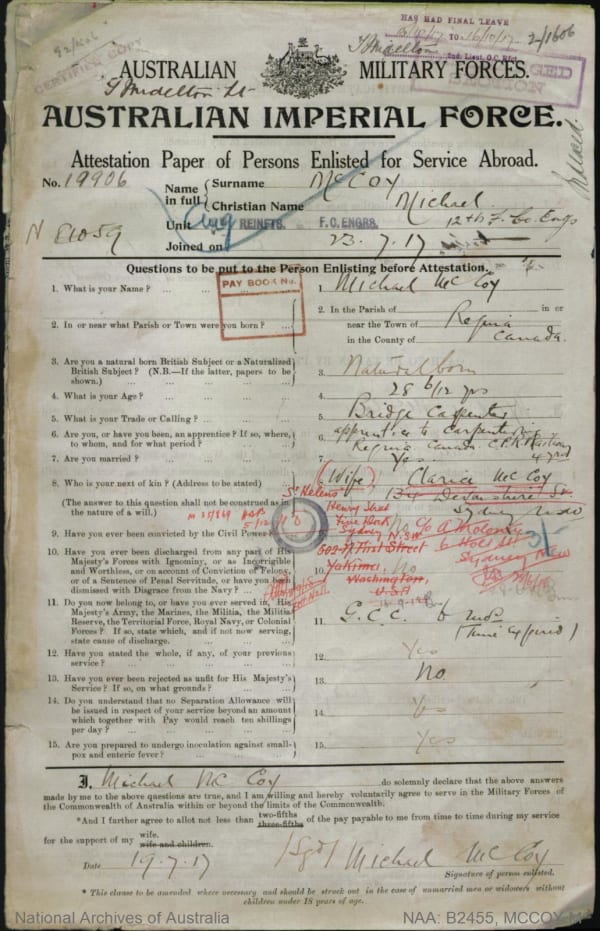 HAS HAD FINAL LEAVE
TO 16/10/17 2/1606
CERTIFIED COPY
2nd. Lieut. O.C. Rfd
AUSTRALIAN MILITARY FORCES.
AUSTRALIAN IMPERIAL FORCE.
Attestation Paper of Persons Enlisted for Service Abroad.
No. 19906
Name in full
Surname McCoy
Christian Name Michael
Unit Aug REINFTS. F.C. ENGRS. 12th F. Co. Engs
Joined on 23.7.17
Questions to be put to the Person Enlisting before Attestation.
PAY BOOK No.
1. What is your Name ? ... 1. Michael McCoy
2. In or near what Parish or Town were you born ? ... 2. In the Parish of in or near the Town of Regina in the County of Canada.
3. Are you a natural born British Subject or a Naturalized British Subject ? (N.B.—If the latter, papers to be shown.) 3. Natural born
4. What is your Age ? ... 4. 28 6/12 yrs
5. What is your Trade or Calling ? ... 5. Bridge Carpenter
6. Are you, or have you been, an apprentice ? If so, where, to whom, and for what period ? 6. apprentice to carpentering Regina Canada C.P.R. 4 yrs
7. Are you married ? ... 7. Yes
8. Who is your next of kin ? (Address to be stated) 8. (Wife) Clarice McCoy
134 Devonshire St
Sydney
(The answer to this question shall not be construed as in the nature of a will.)
"St Helens"
Henry Street
Sydney N.S.W.
602 N First Street
Yakima
Washington
U.S.A
Sydney NSW
9. Have you ever been convicted by the Civil Power ? 9. No
10. Have you ever been discharged from any part of His Majesty's Forces with Ignominy, or as Incorrigible and Worthless, or on account of Conviction of Felony, or of a Sentence of Penal Servitude, or have you been dismissed with Disgrace from the Navy ? ... 10. No
11. Do you now belong to, or have you ever served in, His Majesty's Army, the Marines, the Militia, the Militia Reserve, the Territorial Force, Royal Navy, or Colonial Forces ? If so, state which, and if not now serving, state cause of discharge. 11. G.C.C. 6 mos (Time Expired)
12. Have you stated the whole, if any, of your previous service ? ... 12. Yes
13. Have you ever been rejected as unfit for His Majesty's Service ? If so, on what grounds ? 13. No
14. Do you understand that no Separation Allowance will be issued in respect of your service beyond an amount which together with Pay would reach ten shillings per day ? 14. Yes
15. Are you prepared to undergo inoculation against small-pox and enteric fever ? 15. Yes
I, Michael McCoy do solemnly declare that the above answers
made by me to the above questions are true, and I am willing and hereby voluntarily agree to serve in the Military Forces of
the Commonwealth of Australia within or beyond the limits of the Commonwealth.
*And I further agree to allot not less than two-fifths three-fifths of the pay payable to me from time to time during my service
for the support of my wife. wife and children.
Date 19.7.17 (Sgd) Michael McCoy
Signature of person enlisted.
* This clause to be amended where necessary and should be struck out in the case of unmarried men or widowers without
children under 18 years of age.
National Archives of Australia NAA: B2455, MCCOY M